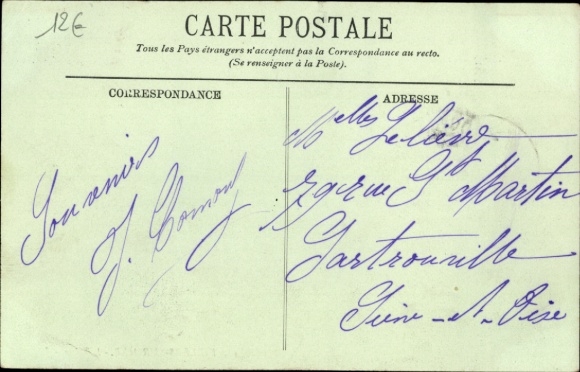 12€
CARTE POSTALE
Tous les Pays étrangers n'acceptent pas la Correspondance au recto.
(Se renseigner à la Poste).
CORRESPONDANCE
ADRESSE
Souvenirs
J.
Melles Lelièvre
rue St Martin
Sartrouville
Seine-et-Oise